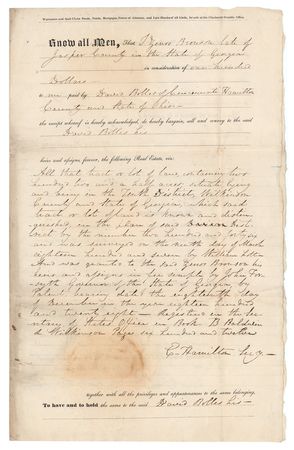 Know all Men, That I Zenos Bronson late of
Jasper County in the State of Georgia
in consideration of one hundred
Dollars
to me paid by David Bolles of Cincinnati Hamilton
County and State of Ohio
the receipt whereof is hereby acknowledged, do hereby bargain, sell and convey to the said
David Bolles his
heirs and assigns forever, the following Real Estate viz:
All that tract or lot of land, containing two
hundred two and a half acres situate lying
and being in the Tenth District, Wilkinson
County and State of Georgia, which said
tract or lot of land is known and distin
guished in the plan of said District
by the number two hundred and
and was surveyed on the ninth day of March
eighteen hundred and seven by William
And was granted to the said Zenos Bronson his
heirs and assigns in fee simple by John For
syth Governor of the State of Georgia, by
Patent bearing date the eighteenth day
of December in the year eighteen hundred
and twenty eight — Registered in the Sec
retary of State's Office in Book B
Wilkinson Pages six hundred and twelve
E. Hamilton Secy
together with all the privileges and appurtenances to the same belonging.
To have and to hold the same to the said David Bolles his